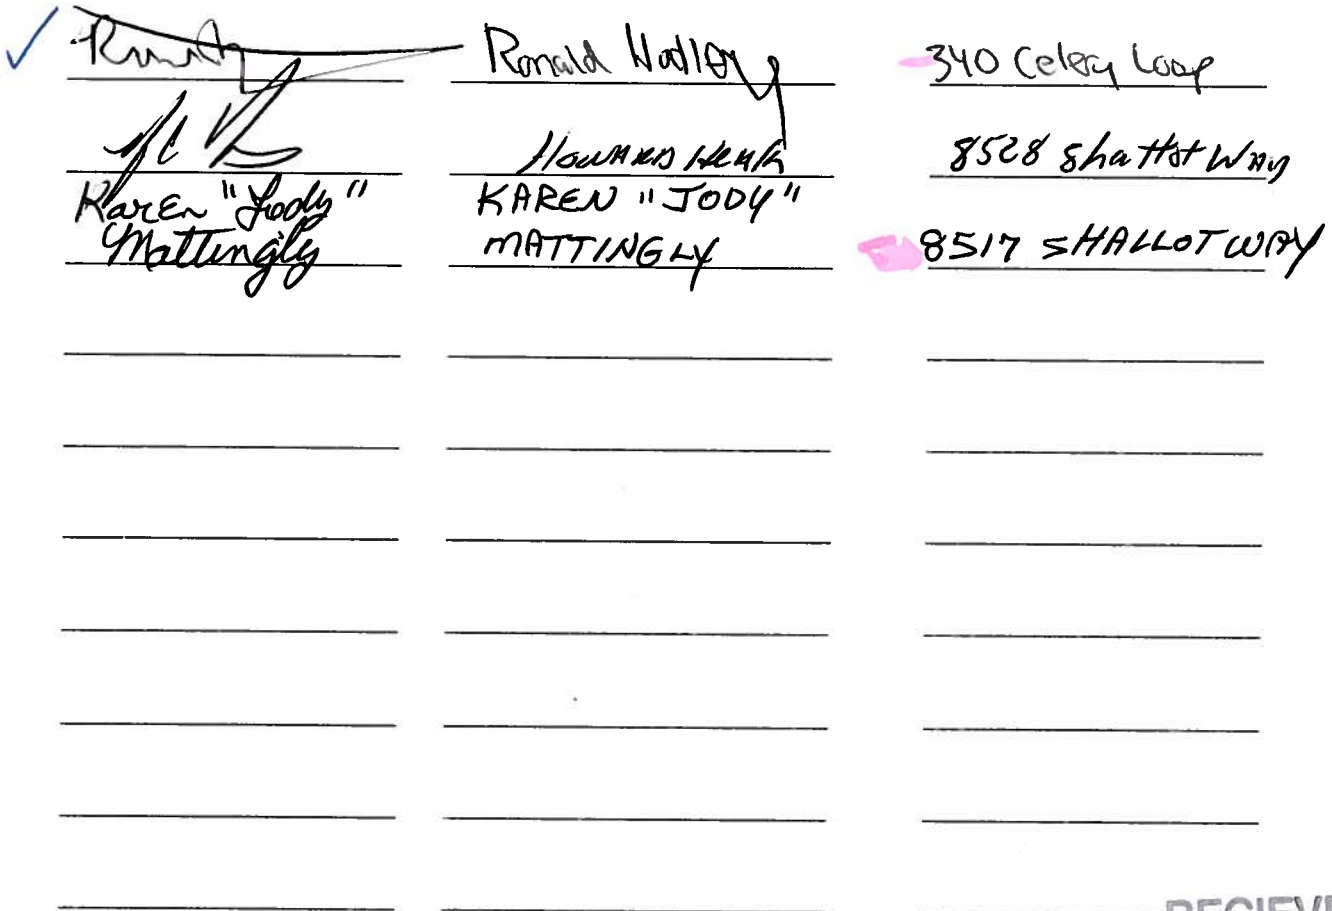 Ronald Hatley 340 Celery Loop
Howard 8528 Shallot Way
Karen "Jody" KAREN "JODY"
Mattingly MATTINGLY 8517 SHALLOT WAY